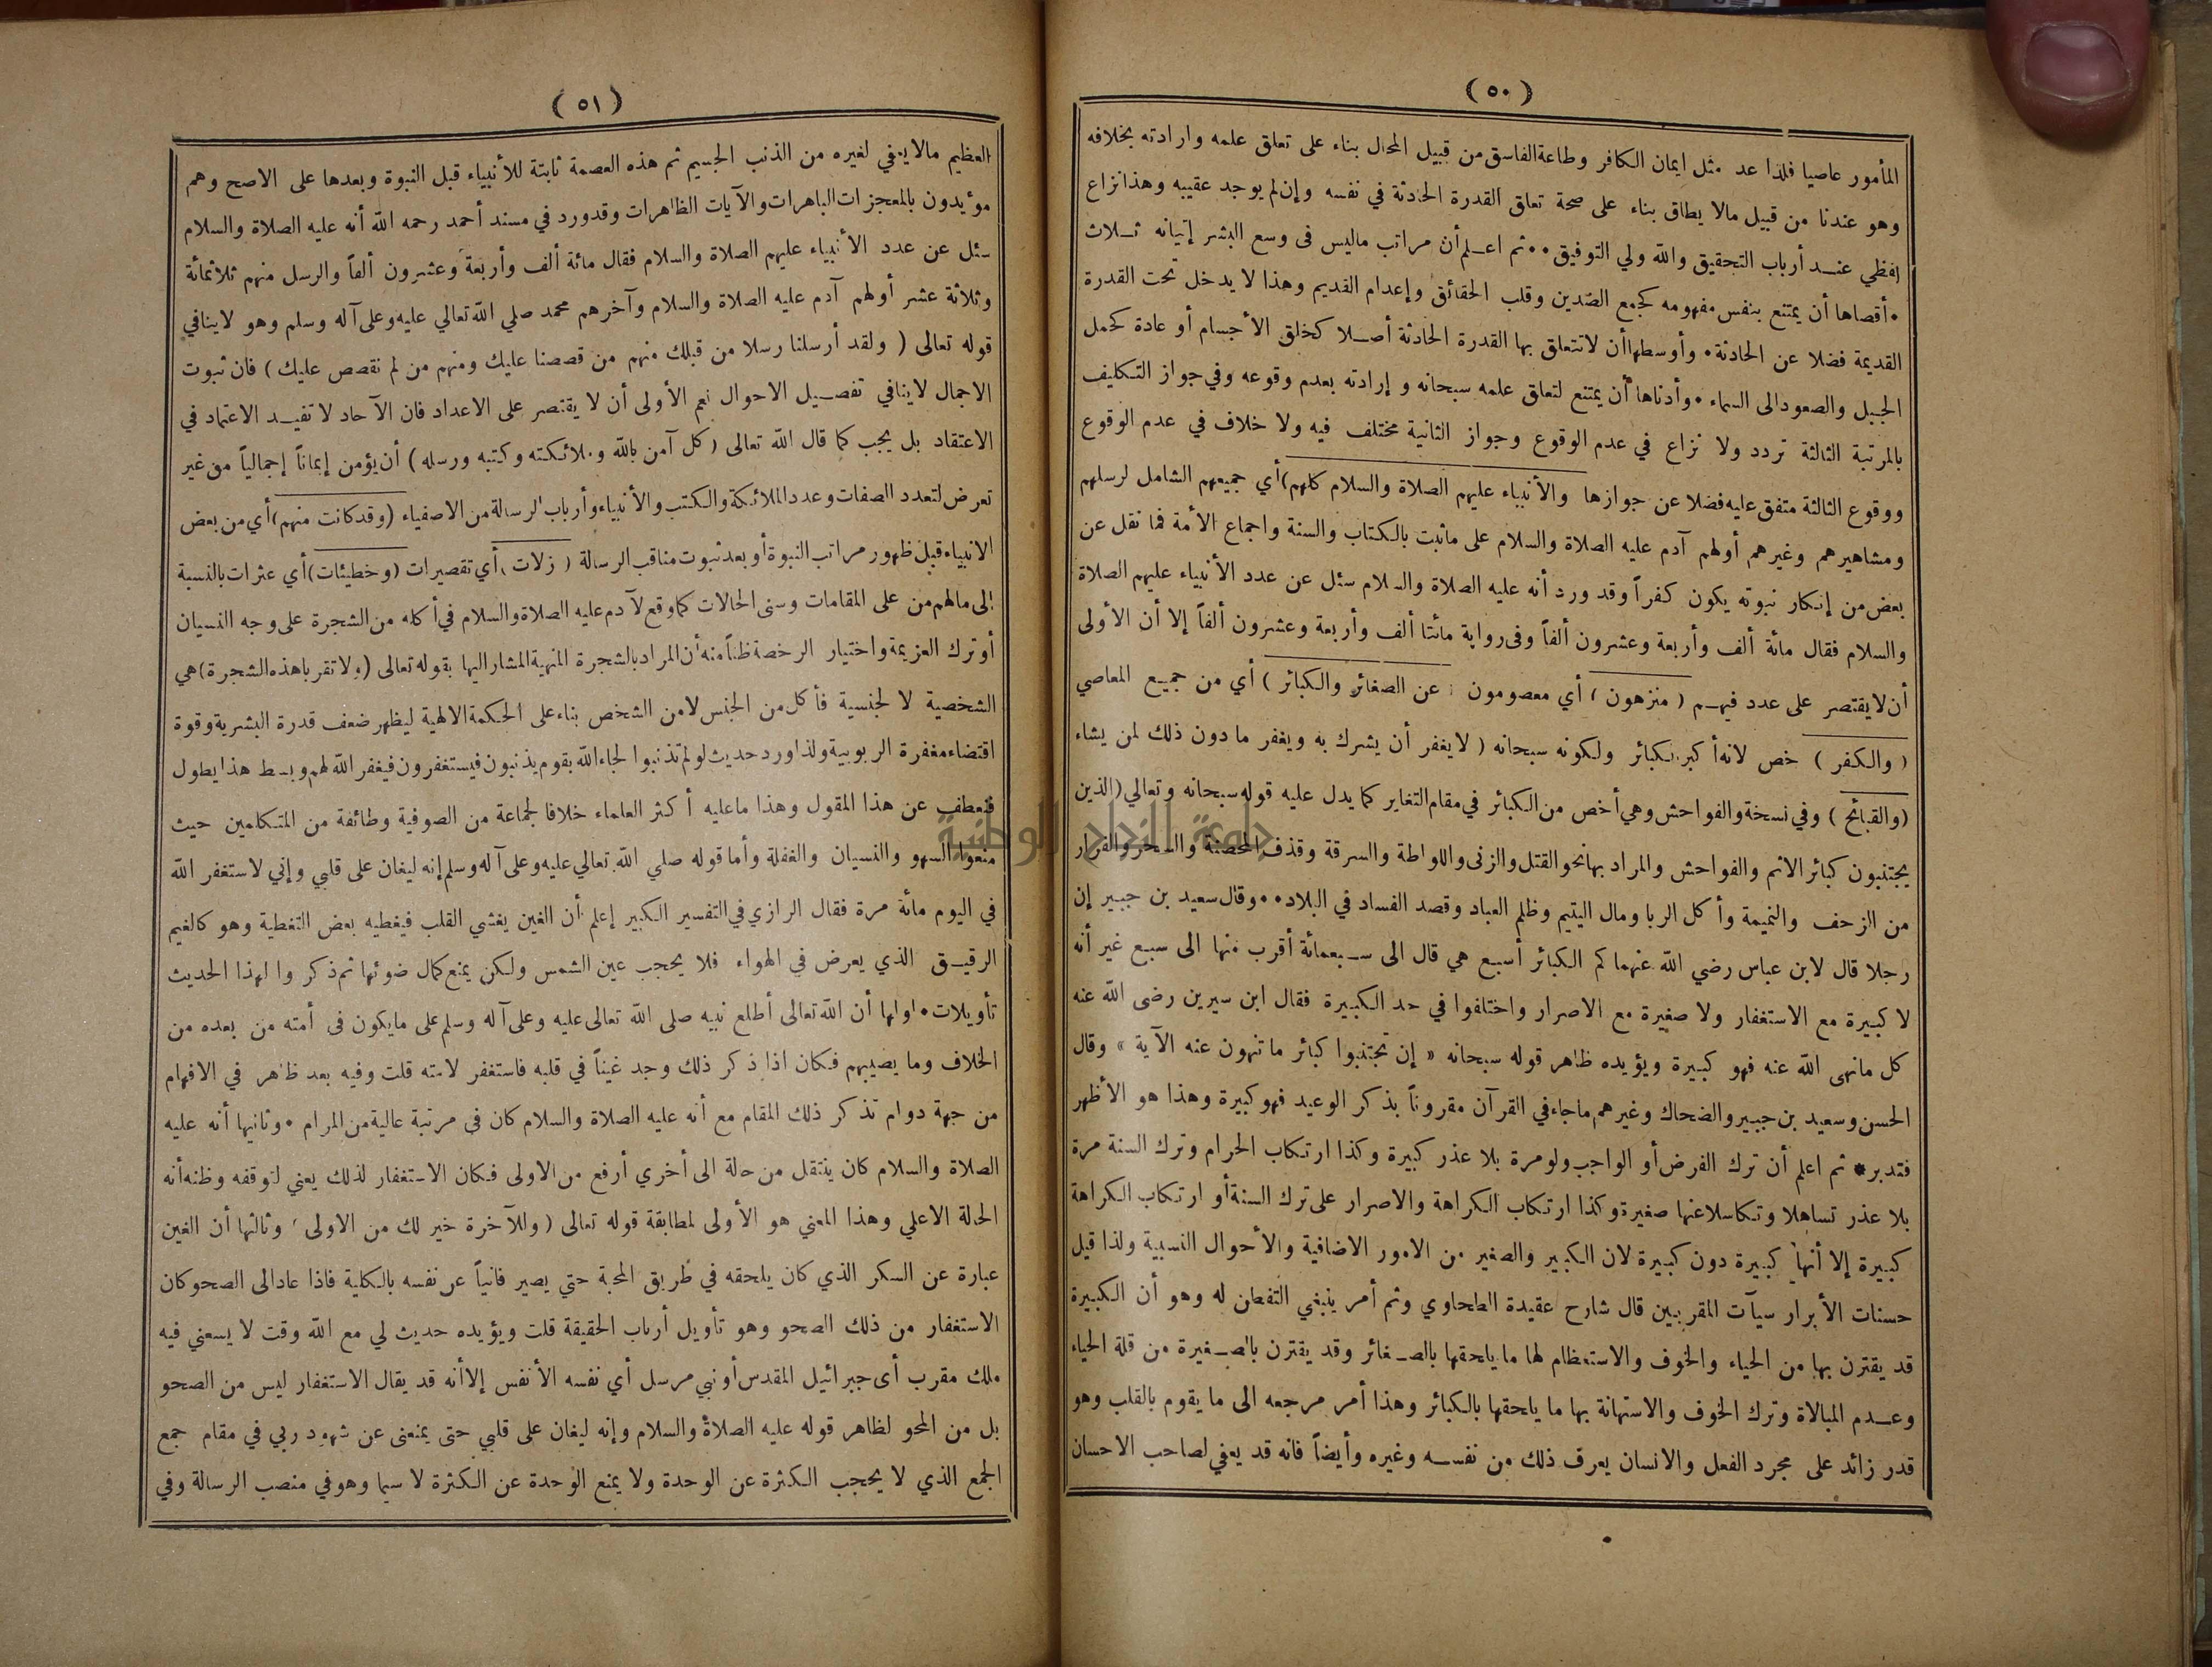 ( ٥٠ )
المأمور عاصيا فلذا عد مثل ايمان الكافر وطاعة الفاسق من قبيل المحال بناء على تعلق علمه وارادته بخلافه
وهو عندنا من قبيل مالا يطاق بناء على صحة تعلق القدرة الحادثة في نفسه وإن لم يوجد عقيبه وهذا نزاع
لفظي عند أرباب التحقيق والله ولي التوفيق •• ثم اعلم أن مراتب ماليس فى وسع البشر إتيانه ثلاث
• أقصاها أن يمتنع بنفس مفهومه كجمع الضدين وقلب الحقائق وإعدام القديم وهذا لا يدخل تحت القدرة
القديمة فضلا عن الحادثة • وأوسطها أن لا تتعلق بها القدرة الحادثة أصلا كخلق الأجسام أو عادة كحمل
الجبل والصعود الى السماء • وأدناها أن يمتنع لتعلق علمه سبحانه و إرادته بعدم وقوعه وفي جواز التكليف
بالمرتبة الثالثة تردد ولا نزاع في عدم الوقوع وجواز الثانية مختلف فيه ولا خلاف في عدم الوقوع
ووقوع الثالثة متفق عليه فضلا عن جوازها والأنبياء عليهم الصلاة والسلام كلهم) أي جميعهم الشامل لرسلهم
ومشاهيرهم وغيرهم أولهم آدم عليه الصلاة والسلام على ماثبت بالكتاب والسنة واجماع الأمة فما نقل عن
بعض من إنكار نبوته يكون كفراً وقد ورد أنه عليه الصلاة والسلام سئل عن عدد الأنبياء عليهم الصلاة
والسلام فقال مائة ألف وأربعة وعشرون ألفاً وفى رواية مائتا ألف وأربعة وعشرون ألفاً إلا أن الأولى
أن لا يقتصر على عدد فيهم ( منزهون ) أي معصومون ( عن الصغائر والكبائر ) أي من جميع المعاصي
( والكفر ) خص لانه أكبر الكبائر ولكونه سبحانه ( لا يغفر أن يشرك به ويغفر ما دون ذلك لمن يشاء
(والقبائح ) وفي نسخة والفواحش وهي أخص من الكبائر في مقام التغاير كما يدل عليه قوله سبحانه وتعالي (الذين
يجتنبون كبائر الاثم والفواحش والمراد بها نحو القتل والزنى واللواطة والسرقة وقذف المحصنة والسحر والفرار
من الزحف والنميمة وأكل الربا ومال اليتيم وظلم العباد وقصد الفساد في البلاد •• وقال سعيد بن جبير إن
رجلا قال لابن عباس رضي الله عنهما كم الكبائر أسبع هي قال الى سبعمائة أقرب منها الى سبع غير أنه
لا كبيرة مع الاستغفار ولا صغيرة مع الاصرار واختلفوا في حد الكبيرة فقال ابن سيرين رضى الله عنه
كل مانهى الله عنه فهو كبيرة ويؤيده ظاهر قوله سبحانه « إن تجتنبوا كبائر ما تنهون عنه الآية » وقال
الحسن وسعيد بن جبير والضحاك وغيرهم ماجاء في القرآن مقروناً بذكر الوعيد فهو كبيرة وهذا هو الأظهر
فتدبر * ثم اعلم أن ترك الفرض أو الواجب ولو مرة بلا عذر كبيرة وكذا ارتكاب الحرام وترك السنة مرة
بلا عذر تساهلا وتكاسلا عنها صغيرة وكذا ارتكاب الكراهة والاصرار على ترك السنة أو ارتكاب الكراهة
كبيرة إلا أنها كبيرة دون كبيرة لان الكبير والصغير من الامور الاضافية والأحوال النسبية ولذا قيل
حسنات الأبرار سيآت المقربين قال شارح عقيدة الطحاوي وثم أمر ينبغي التفطن له وهو أن الكبيرة
قد يقترن بها من الحياء والخوف والاستعظام لها ما يلحقها بالصغائر وقد يقترن بالصغيرة من قلة الحياء
وعدم المبالاة وترك الخوف والاستهانة بها ما يلحقها بالكبائر وهذا أمر مرجعه الى ما يقوم بالقلب وهو
قدر زائد على مجرد الفعل والانسان يعرف ذلك من نفسه وغيره وأيضاً فانه قد يعفي لصاحب الاحسان
( ٥١ )
العظيم مالا يعفي لغيره من الذنب الجسيم ثم هذه العصمة ثابتة للأنبياء قبل النبوة وبعدها على الاصح وهم
مؤيدون بالمعجزات الباهرات والآيات الظاهرات وقد ورد في مسند أحمد رحمه الله أنه عليه الصلاة والسلام
سئل عن عدد الأنبياء عليهم الصلاة والسلام فقال مائة ألف وأربعة وعشرون ألفاً والرسل منهم ثلاثمائة
وثلاثة عشر أولهم آدم عليه الصلاة والسلام وآخرهم محمد صلي الله تعالي عليه وعلى آله وسلم وهو لاينافي
قوله تعالى ( ولقد أرسلنا رسلا من قبلك منهم من قصصنا عليك ومنهم من لم نقصص عليك ) فان ثبوت
الاجمال لاينافي تفصيل الاحوال نعم الأولى أن لا يقتصر على الاعداد فان الآحاد لا تفيد الاعتماد في
الاعتقاد بل يجب كما قال الله تعالى ( كل آمن بالله وملائكته وكتبه ورسله ) أن يؤمن إيماناً إجمالياً من غير
تعرض لتعدد الصفات وعدد الملائكة والكتب والأنبياء وأرباب الرسالة من الاصفياء ( وقد كانت منهم ) أي من بعض
الانبياء قبل ظهور مراتب النبوة أو بعد ثبوت مناقب الرسالة ( زلات ) أي تقصيرات (وخطيئات) أي عثرات بالنسبة
إلى مالهم من على المقامات وسنى الحالات كما وقع لآدم عليه الصلاة والسلام في أكله من الشجرة على وجه النسيان
أو ترك العزيمة واختيار الرخصة ظناً منه أن المراد بالشجرة المنهية المشار اليها بقوله تعالى ( ولا تقربا هذه الشجرة ) هي
الشخصية لا لجنسية فأكل من الجنس لامن الشخص بناء على الحكمة الالهية ليظهر ضعف قدرة البشرية وقوة
اقتضاء مغفرة الربوبية ولذا ورد حديث لو لم تذنبوا لجاء الله بقوم يذنبون فيستغفرون فيغفر الله لهم وبسط هذا يطول
فنعطف عن هذا المقول وهذا ماعليه أكثر العلماء خلافا لجماعة من الصوفية وطائفة من المتكلمين حيث
منعوا السهو والنسيان والغفلة وأما قوله صلي الله تعالي عليه وعلى آله وسلم إنه ليغان على قلبي وإني لاستغفر الله
في اليوم مائة مرة فقال الرازي في التفسير الكبير إعلم أن الغين يغشي القلب فيغطيه بعض التغطية وهو كالغيم
الرقيق الذي يعرض في الهواء فلا يحجب عين الشمس ولكن يمنع كمال ضوئها ثم ذكر وا لهذا الحديث
تأويلات • اولها أن الله تعالى أطلع نبيه صلى الله تعالى عليه وعلى آله وسلم على مايكون فى أمته من بعده من
الخلاف وما يصيبهم فكان اذا ذكر ذلك وجد غيناً في قلبه فاستغفر لامته قلت وفيه بعد ظاهر في الافهام
من جهة دوام تذكر ذلك المقام مع أنه عليه الصلاة والسلام كان فى مرتبة عالية من المرام • وثانيها أنه عليه
الصلاة والسلام كان ينتقل من حالة الى أخري أرفع من الاولى فكان الاستغفار لذلك يعني لتوقفه وظنه أنه
الحالة الاعلي وهذا المعني هو الأولى لمطابقة قوله تعالى ( وللآخرة خير لك من الاولى ) وثالثها أن الغين
عبارة عن السكر الذي كان يلحقه في طريق المحبة حتي يصير فانياً عن نفسه بالكلية فاذا عاد الى الصحو كان
الاستغفار من ذلك الصحو وهو تأويل أرباب الحقيقة قلت ويؤيده حديث لي مع الله وقت لا يسعني فيه
ملك مقرب أى جبرائيل المقدس أو نبي مرسل أي نفسه الأنفس إلا أنه قد يقال الاستغفار ليس من الصحو
بل من المحو لظاهر قوله عليه الصلاة والسلام وإنه ليغان على قلبي حتى يمنعنى عن شهود ربي في مقام جمع
الجمع الذي لا يحجب الكثرة عن الوحدة ولا يمنع الوحدة عن الكثرة لا سيما وهو في منصب الرسالة وفي
جامعة النجاح الوطنية